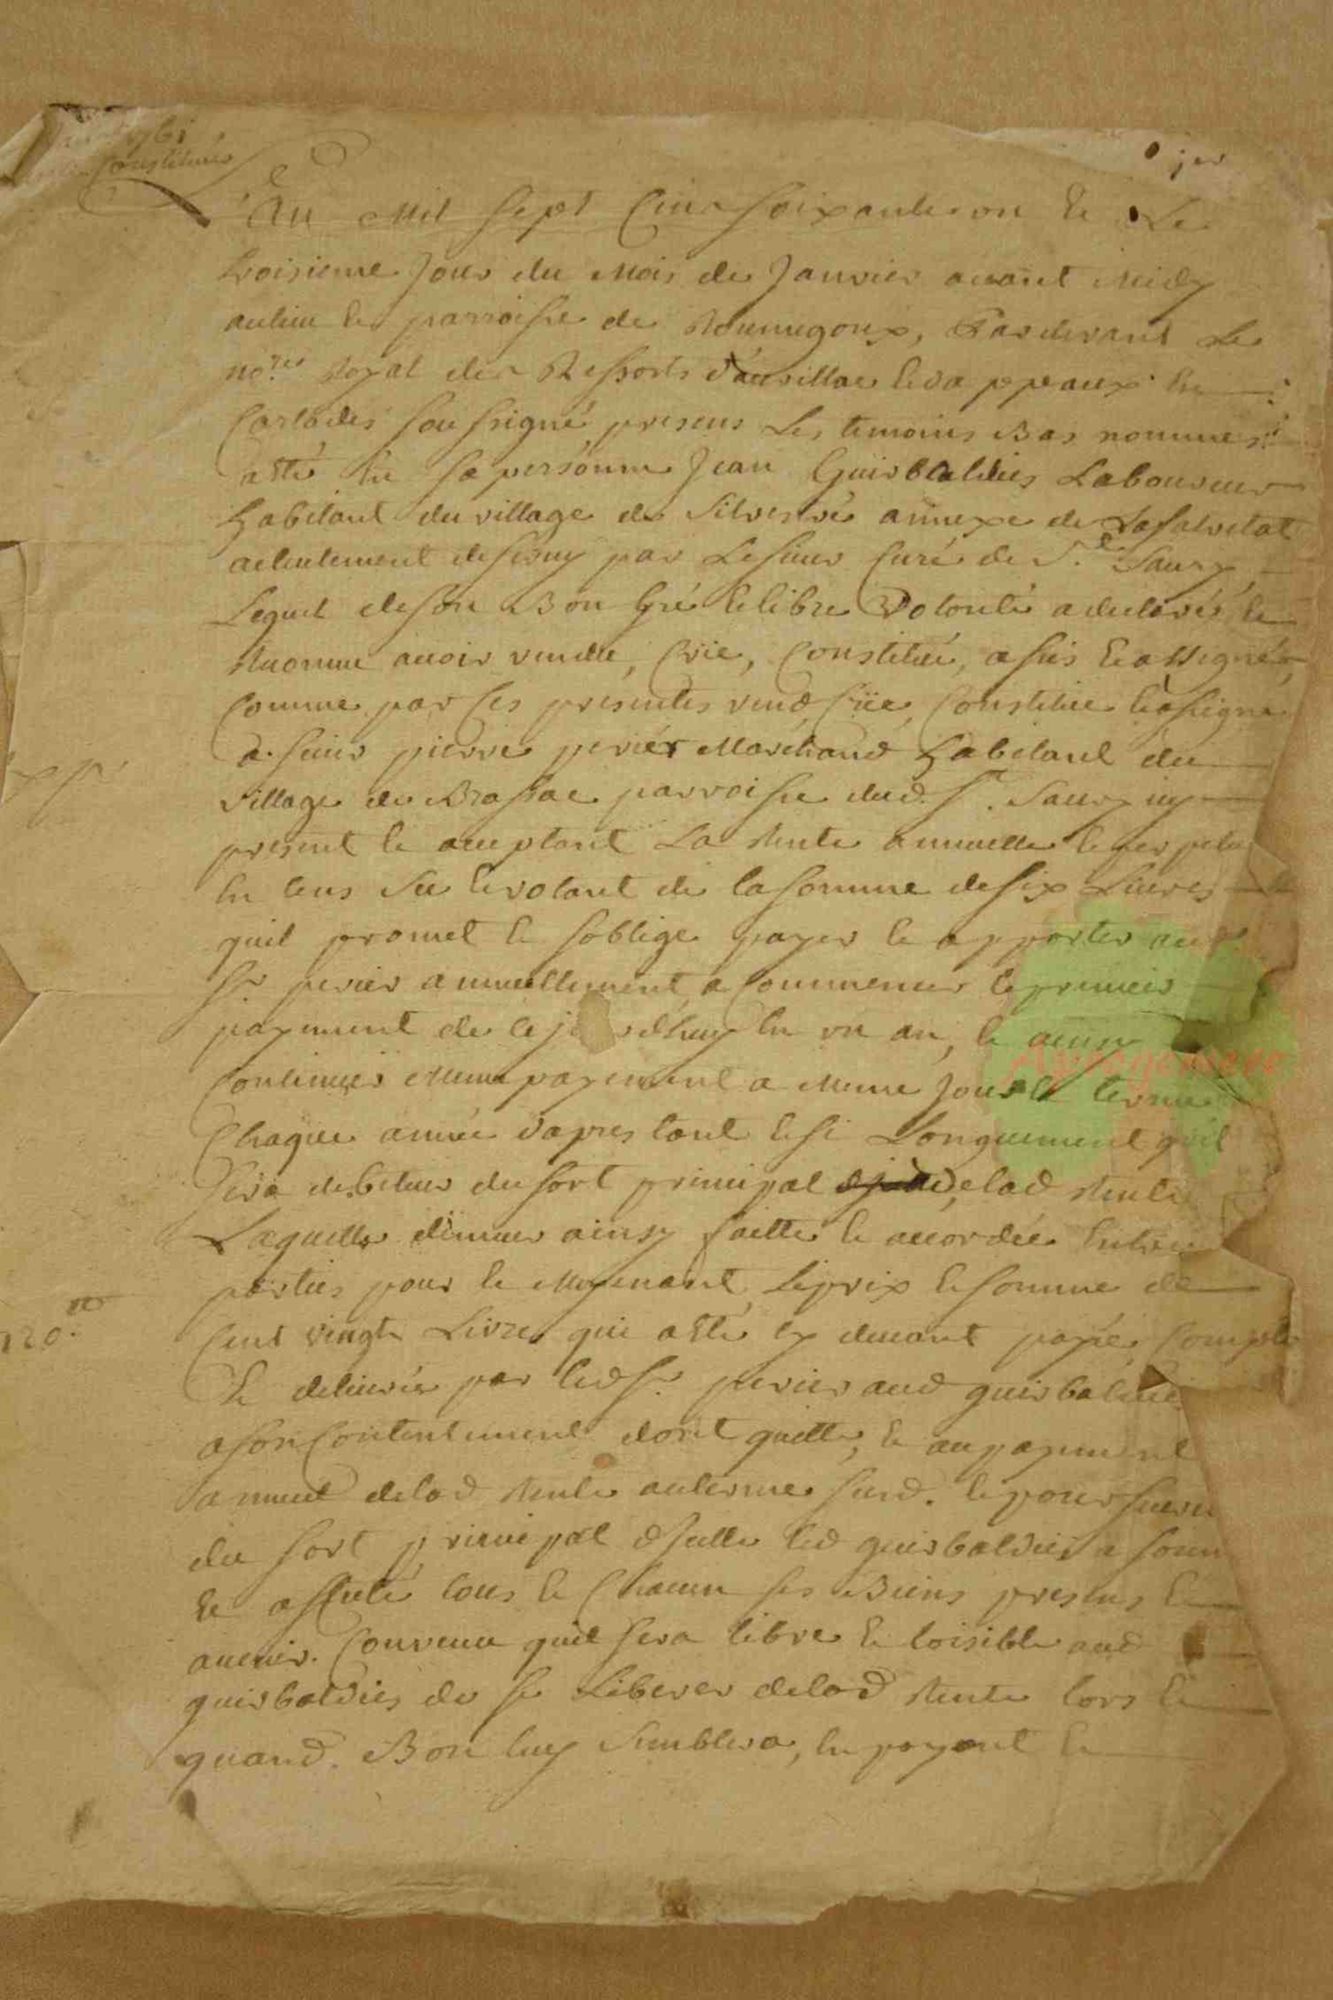 1761
Constitution
jer
An Mil Sept Cens soixante on Et Le
troisieme Jour du Mois de Janvier avant Midy
au lieu et parroisse de Roumegoux, Pardevant Le
no.re Royal des Ressorts d'aurillac et d'appeaux en
Carlades soussigné, presens Les temoins Bas nommés
a été en sa personne Jean Guirbaldies Laboureur
habitant du village de annexe de Lasalvetat
par Le sieur Curé de St. Saury
Lequel de son Bon Gré et libre Volonté a declaré et
avoir vendu, Crée, Constitué, assis Et assigné
Comme par Ces presentes vend Crée Constitue et assigne
a sieur pierre perier Marchand habitant du
village de Brassac parroisse dud. St. Saury icy
present et acceptant La Rente annuelle et perpetu
la somme de six Livres
quil promet et soblige payer et apporter aud
Sr. perier annuellement, a Commencer le premier
payement de ce jourdhuy en un an, et ainsy
Continuer Meme payement a Meme Jour et terme
Chaque année dapres tant et si Longuement quil
sera debiteur du sort principal delad Rente
Laquelle ainsy faitte et accordée Entre
parties pour et Moyenant Le prix et somme de
120.tt
Cent vingt Livres qui a Eté cy devant payée Compte
Et delivrée par led Sr. perier aud guirbaldies
a son Contentement dont quitte, et au payement
annuel delad Rente au terme susd. et pour
du sort principal led guirbaldies a soum
Et affecté tous Et Chacun ses Biens presens Et
avenir. Convenu quil sera libre Et loisible aud
guirbaldies de se Liberer delad Rente lors Et
quand Bon luy semblera, en payant Le
Auvergenwere